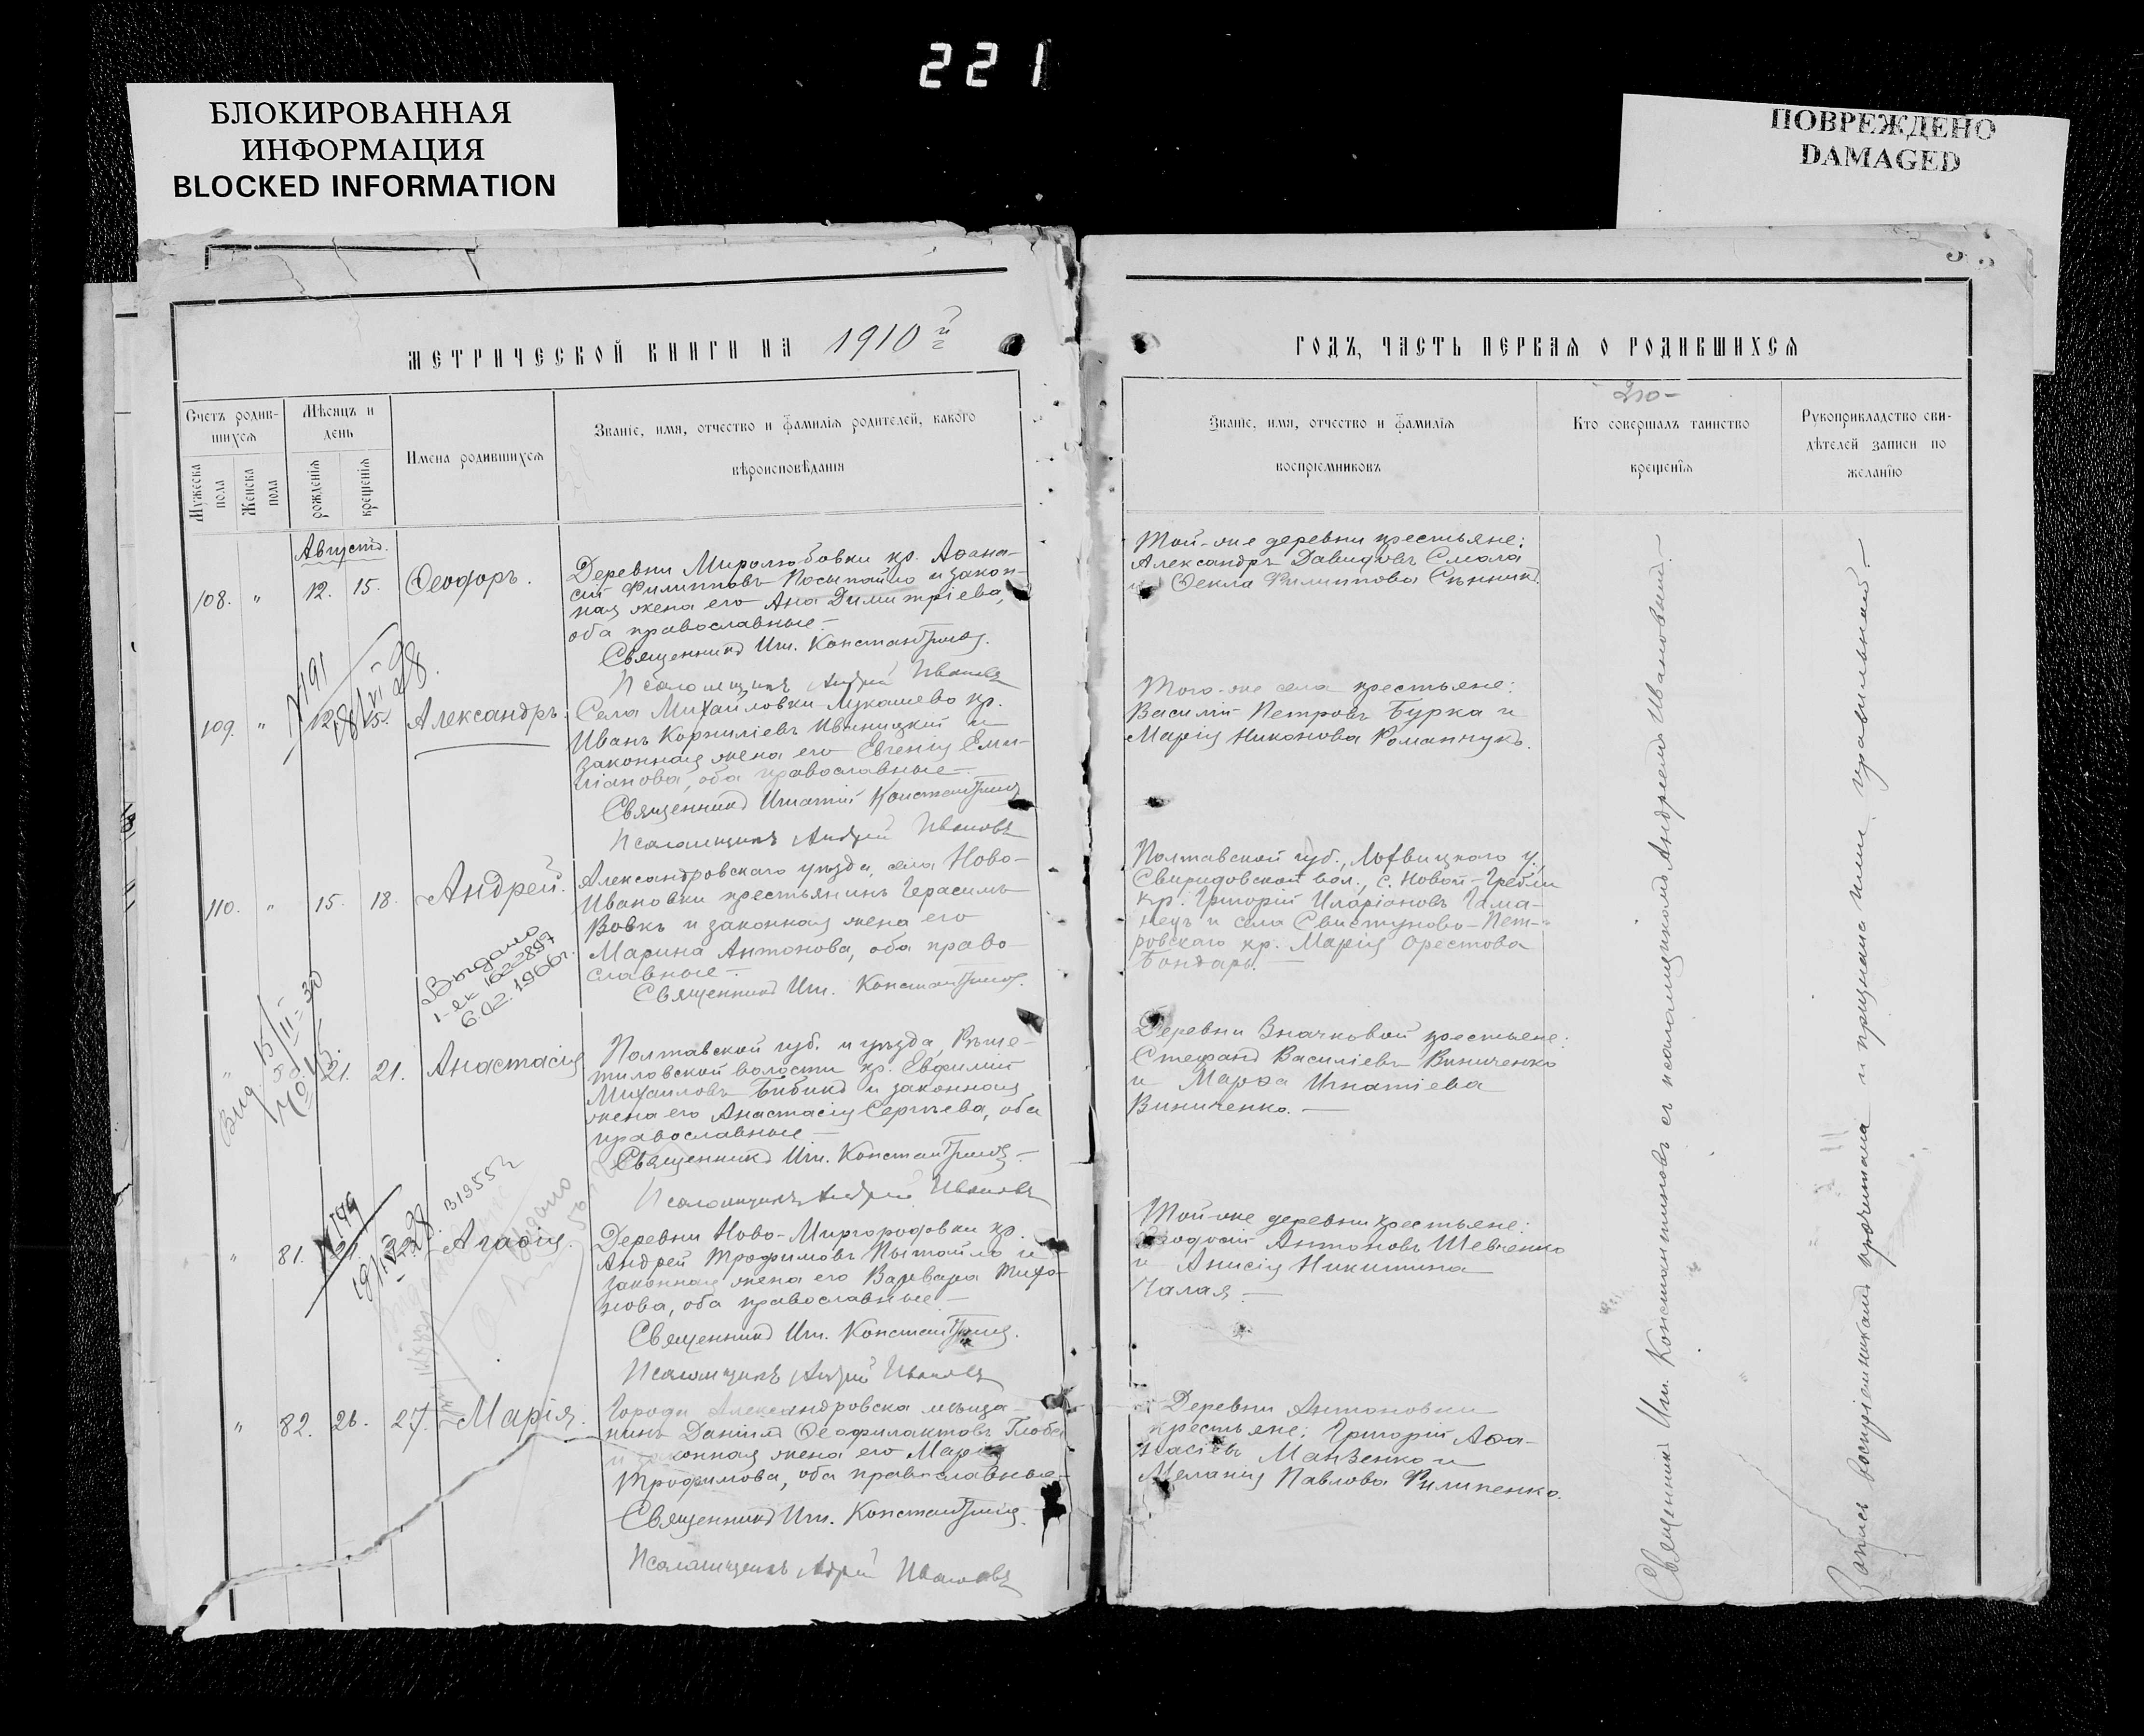 221
БЛОКИРОВАННАЯ
ИНФОРМАЦИЯ
BLOCKED INFORMATION
ПОВРЕЖДЕНО
DAMAGED
МЕТРИЧЕСКОЙ КНИГИ НА 1910 й
Счетъ родив-
шихся
Мѣсяцъ и
день
Имена родившихся
Званіе, имя, отчество и фамилія родителей, какого
вѣроисповѣданія
Мужеска
пола
Женска
пола
рожденія
крещенія
Августъ.
108. " 12. 15. Ѳеодоръ.
Деревни Миролюбовки кр. Аѳана-
сій Филипповъ Посыпайло и закон-
ная жена его Ана Димитріева,
оба православные —
Священникъ Иг. Константиновъ.
Псаломщикъ Андрей Ивановъ
191
28/VI 28.
109. " 12. 15. Александръ.
Села Михайловки Лукашево кр.
Иванъ Корниліевъ Ивницкій и
законная жена его Евгенія Еми-
ліанова, оба православные —
Священникъ Игнатій Константиновъ
Псаломщикъ Андрей Ивановъ
110. " 15. 18. Андрей.
Александровскаго уѣзда, села Ново-
Ивановки крестьянинъ Герасимъ
Вовкъ и законная жена его
Марина Антонова, оба право-
славные —
Священникъ Иг. Константиновъ.
Выдано
1-ек 1622897
6.02.1966г.
" 21. 21. Анастасія
Полтавской губ. и уѣзда, Рѣше-
тиловской волости кр. Евфимій
Михаиловъ Бибикъ и законная
жена его Анастасія Сергѣева, оба
православные —
Священникъ Иг. Константиновъ —
Псаломщикъ Андрей Ивановъ
В19552
" 81. 21. Агаѳія.
Деревни Ново-Миргородовки кр.
Андрей Трофимовъ Пытайло и
законная жена его Варвара Тихо-
нова, оба православные —
Священникъ Иг. Константиновъ.
Псаломщикъ Андрей Ивановъ
" 82. 26. 27. Марія.
Города Александровска мѣща-
нинъ Даніилъ Ѳеофилактовъ Глоба
и законная жена его Марія
Трофимова, оба православные —
Священникъ Иг. Константиновъ.
Псаломщикъ Андрей Ивановъ
ГОДЪ, ЧАСТЬ ПЕРВАЯ О РОДИВШИХСЯ
Званіе, имя, отчество и фамилія
воспріемниковъ
Кто совершалъ таинство
крещенія
Рукоприкладство сви-
дѣтелей записи по
желанію
Той-же деревни крестьяне:
Александръ Давидовъ Смола
и Ѳекла Филиппова Сѣнникъ.
Того-же села крестьяне:
Василій Петровъ Бурка и
Марія Никонова Романнукъ.
Полтавской губ., Лохвицкаго у.,
Свиридовской вол., с. Новой-Гребли
кр. Григорій Иларіоновъ Гама-
нецъ и села Свистуново-Пет-
ровскаго кр. Марія Орестова
Бондарь.
Деревни Значковой крестьяне:
Стефанъ Василіевъ Виниченко
и Марѳа Игнатіева
Виниченко. —
Той-же деревни крестьяне:
Ѳеодосій Антоновъ Шевченко
и Анисія Никитина
Чалая —
Деревни Антоновки
крестьяне: Григорій Аѳа-
насіевъ Манзенко и
Меланія Павлова Филипенко.
Священникъ Иг. Константиновъ съ псаломщикомъ Андреемъ Ивановымъ. —
Запись воспріемниками прочитана и признана ими правильной —